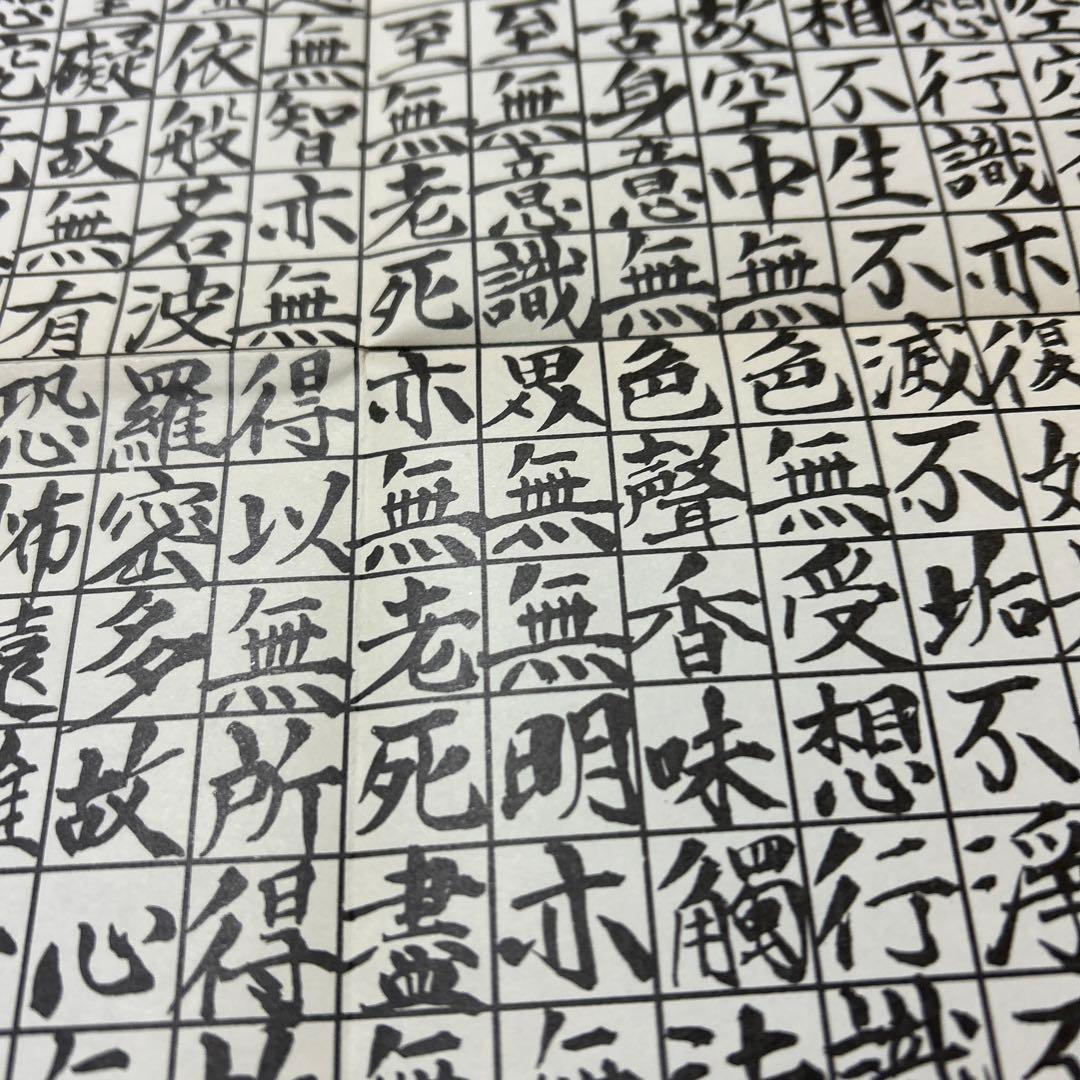 空空
想行識亦復如
相不生不滅不垢不淨不
故空中無色無受想行識
舌身意無色聲香味觸法
至無意識界無無明亦無
至無老死亦無老死盡無
無智亦無得以無所得故
依般若波羅密多故心無
罣礙故無有恐怖遠離
究